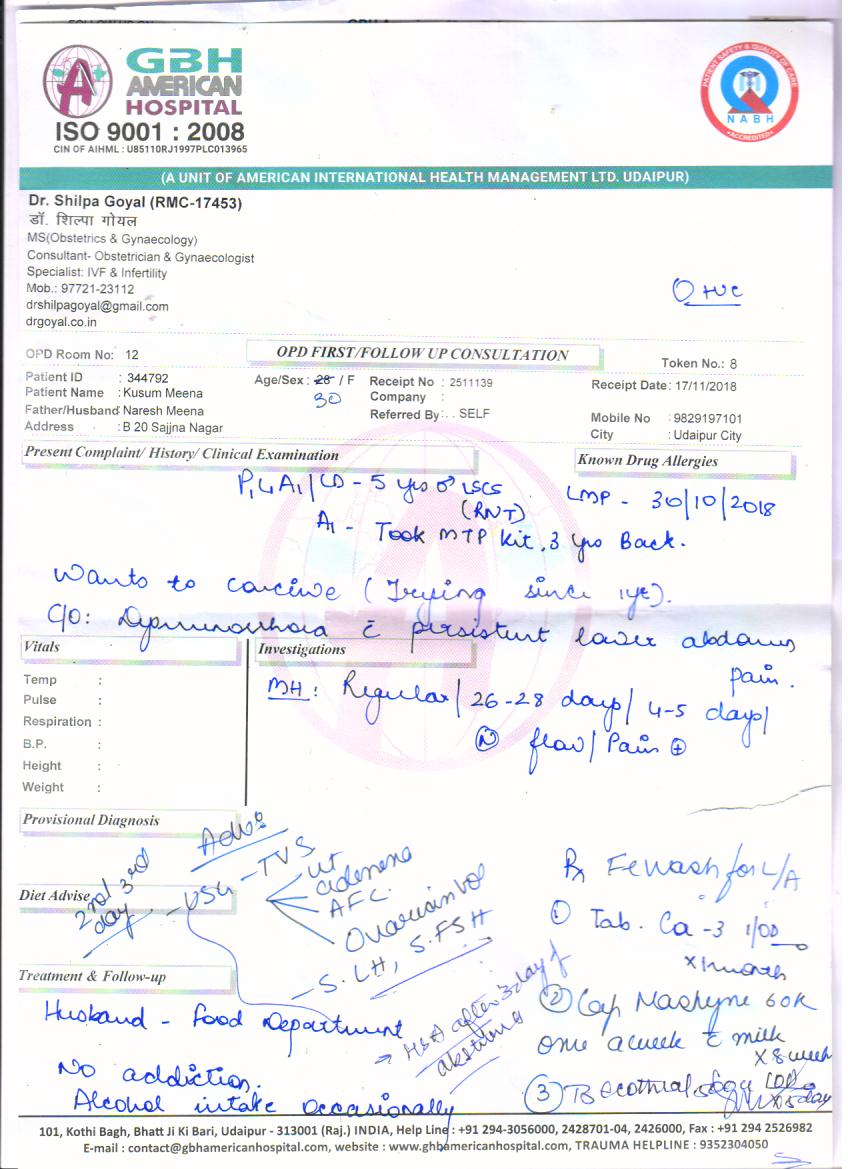 GBH
AMERICAN
HOSPITAL
ISO 9001 : 2008
CIN OF AIHML : U85110RJ1997PLC013965
PATIENT SAFETY & QUALITY OF CARE
NABH
ACCREDITED
(A UNIT OF AMERICAN INTERNATIONAL HEALTH MANAGEMENT LTD. UDAIPUR)
Dr. Shilpa Goyal (RMC-17453)
डॉ. शिल्पा गोयल
MS(Obstetrics & Gynaecology)
Consultant- Obstetrician & Gynaecologist
Specialist: IVF & Infertility
Mob.: 97721-23112
drshilpagoyal@gmail.com
drgoyal.co.in
OPD Room No: 12
OPD FIRST/FOLLOW UP CONSULTATION
Token No.: 8
Patient ID : 344792
Age/Sex : 28 / F
30
Receipt No : 2511139
Receipt Date: 17/11/2018
Patient Name : Kusum Meena
Company :
Father/Husband: Naresh Meena
Referred By: . . SELF
Mobile No : 9829197101
Address : B 20 Sajjna Nagar
City : Udaipur City
Present Complaint/ History/ Clinical Examination
Known Drug Allergies
P1L1A1/LD - 5 yrs ♂ LSCS
(RNT)
LMP - 30/10/2018
A1 - Took MTP Kit, 3 yrs Back.
Wants to conceive (Trying since 1yr).
C/O: Dysmenorrhoea c persistent lower abdomen
pain.
Vitals
Investigations
MH: Regular/ 26-28 days/ 4-5 days/
(N) flow/ Pain +
Temp :
Pulse :
Respiration :
B.P. :
Height :
Weight :
Provisional Diagnosis
Adv:
2nd 3rd
day
- USG - TVS
ut
AFC.
Ovarian vol
- S. LH, S. FSH
Diet Advise
Rx for L/A
1 Tab. Ca-3 1/OD
x 1 month
Treatment & Follow-up
Husband - Food Department
→ HSA after 3 day of
2 Cap 60K
one a week c milk
x 8 week
No addiction.
Alcohol intake occasionally
3
x 5 day
101, Kothi Bagh, Bhatt Ji Ki Bari, Udaipur - 313001 (Raj.) INDIA, Help Line : +91 294-3056000, 2428701-04, 2426000, Fax : +91 294 2526982
E-mail : contact@gbhamericanhospital.com, website : www.ghbamericanhospital.com, TRAUMA HELPLINE : 9352304050